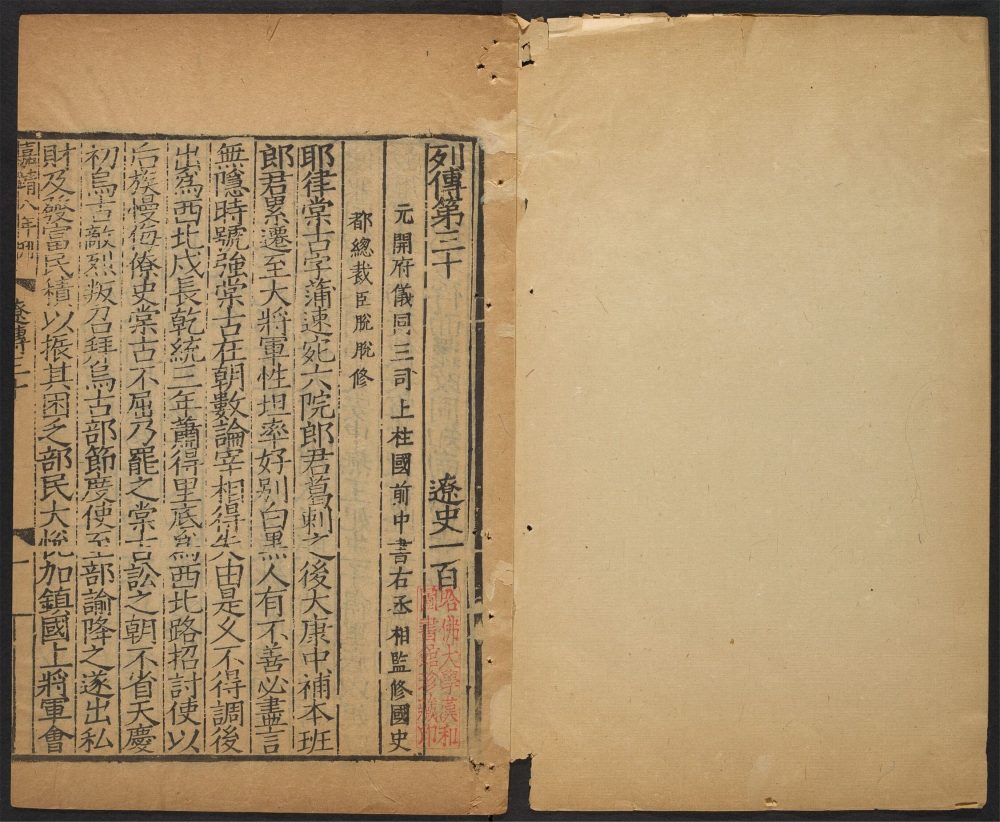 列傳第三十 遼史一百
元開府儀同三司上柱國前中書右丞相監修國史
都總裁臣脫脫修
耶律棠古字蒲速宛六院郎君葛剌之後大康中補本班
郎君累遷至大將軍性坦率好别白黑人有不善必盡言
無隱時號強棠古在朝數論宰相得失由是久不得調後
出爲西北戍長乾統三年蕭得里底爲西北路招討使以
后族慢侮僚吏棠古不屈乃罷之棠古訟之朝不省天慶
初烏古敵烈叛召拜烏古部節度使至部諭降之遂出私
財及發富民積以振其困乏部民大悅加鎮國上將軍會
嘉靖八年刊 遼傳三十 一
哈佛大學漢和
圖書館珍藏印